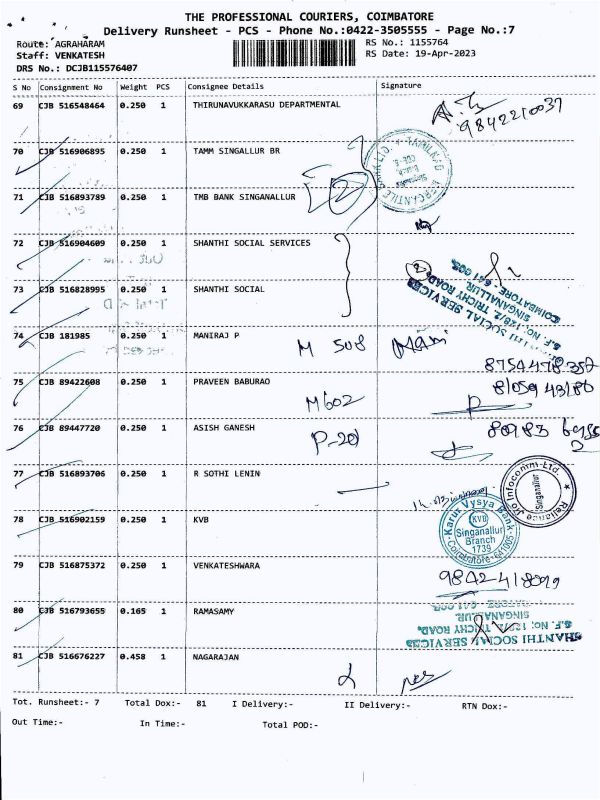 THE PROFESSIONAL COURIERS, COIMBATORE
Delivery Runsheet - PCS - Phone No.:0422-3505555 - Page No.:7
Route: AGRAHARAM RS No.: 1155764
Staff: VENKATESH RS Date: 19-Apr-2023
DRS No.: DCJB115576407
S No Consignment No Weight PCS Consignee Details Signature
69 CJB 516548464 0.250 1 THIRUNAVUKKARASU DEPARTMENTAL
9842210037
70 CJB 516906895 0.250 1 TAMM SINGALLUR BR
TAMILNAD MERCANTILE BANK LTD.
71 CJB 516893789 0.250 1 TMB BANK SINGANALLUR 2
72 CJB 516904609 0.250 1 SHANTHI SOCIAL SERVICES
73 CJB 516828995 0.250 1 SHANTHI SOCIAL 2
SHANTHI SOCIAL SERVICES
S.F. NO: 128/2, TRICHY ROAD,
SINGANALLUR,
COIMBATORE - 641 005.
74 CJB 181985 0.250 1 MANIRAJ P M 508 Mani
8754478352
75 CJB 89422608 0.250 1 PRAVEEN BABURAO M602
76 CJB 89447720 0.250 1 ASISH GANESH P-201
77 CJB 516893706 0.250 1 R SOTHI LENIN
Reliance Jio Infocomm Ltd.
Singanallur
78 CJB 516902159 0.250 1 KVB
Karur Vysya Bank
KVB
Singanallur
Branch
1739
Coimbatore-641005
79 CJB 516875372 0.250 1 VENKATESHWARA
9842-418099
80 CJB 516793655 0.165 1 RAMASAMY
SHANTHI SOCIAL SERVICES
S.F. NO: 128/2, TRICHY ROAD,
SINGANALLUR,
81 CJB 516676227 0.458 1 NAGARAJAN
Tot. Runsheet:- 7 Total Dox:- 81 I Delivery:- II Delivery:- RTN Dox:-
Out Time:- In Time:- Total POD:-